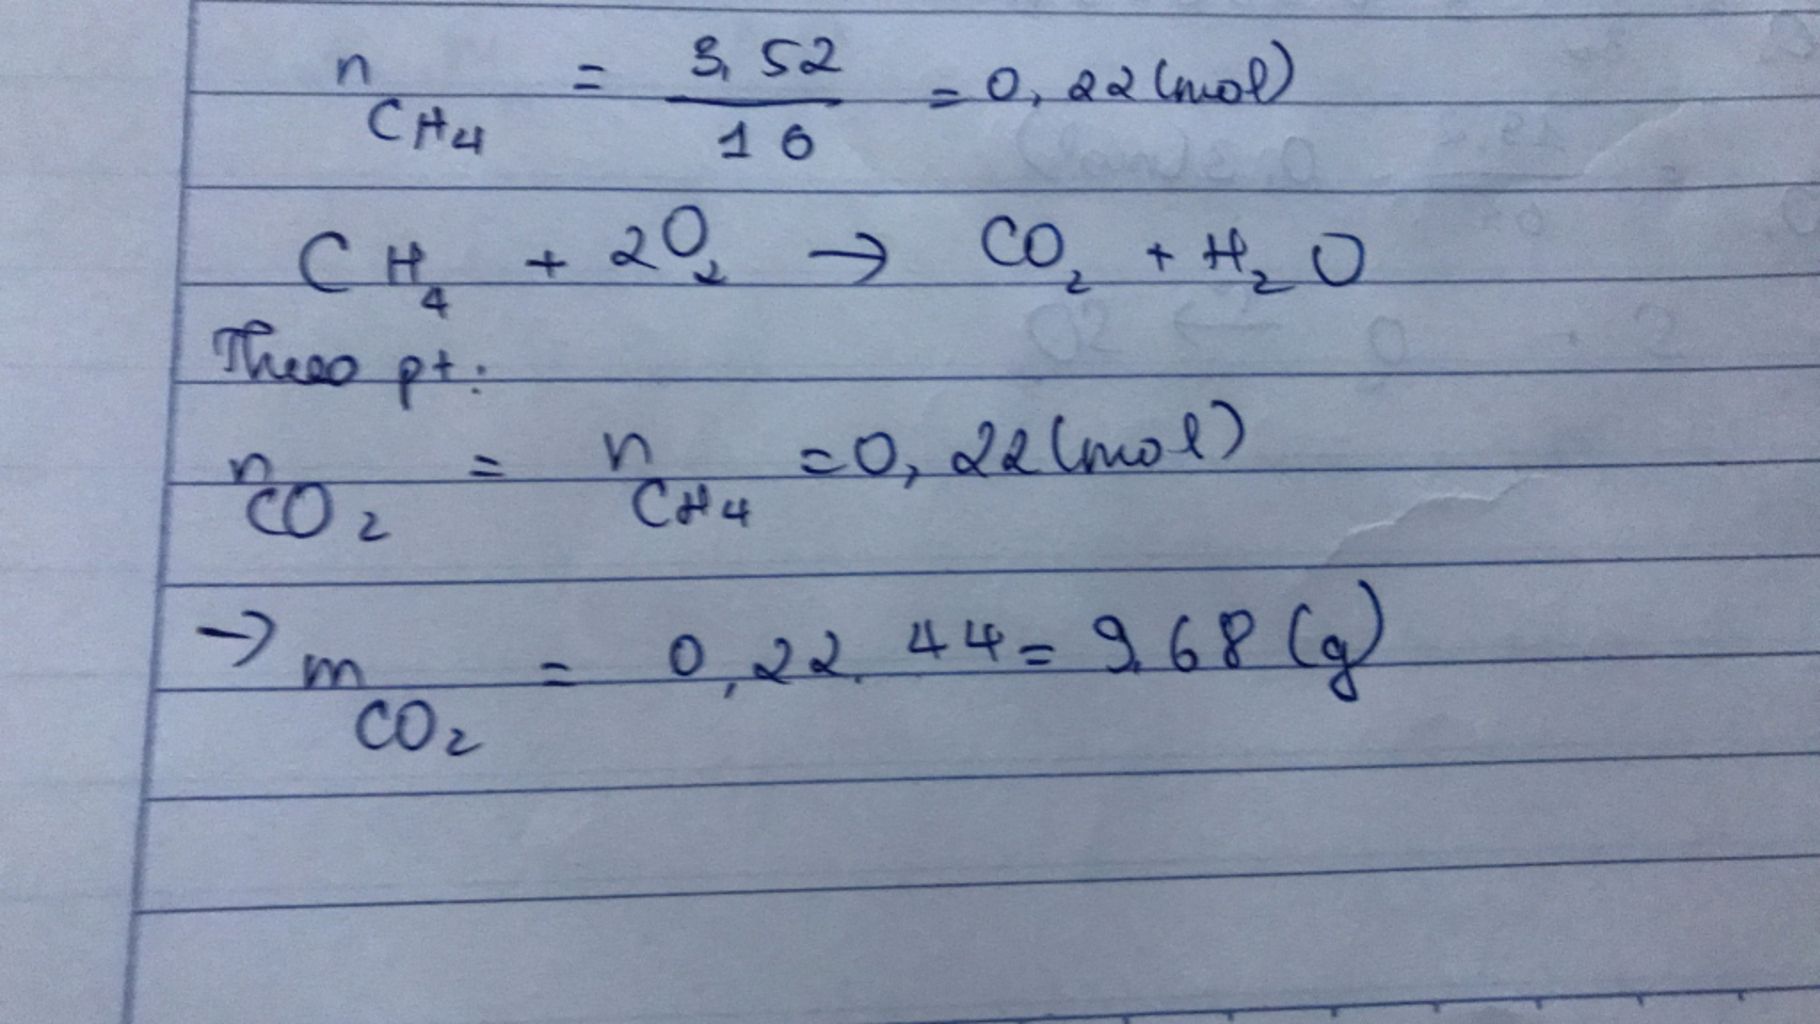 n CH4 = 3,52 / 16 = 0,22 (mol)
CH4 + 2O2 → CO2 + H2O
Theo pt:
n CO2 = n CH4 = 0,22 (mol)
→ m CO2 = 0,22. 44 = 9,68 (g)